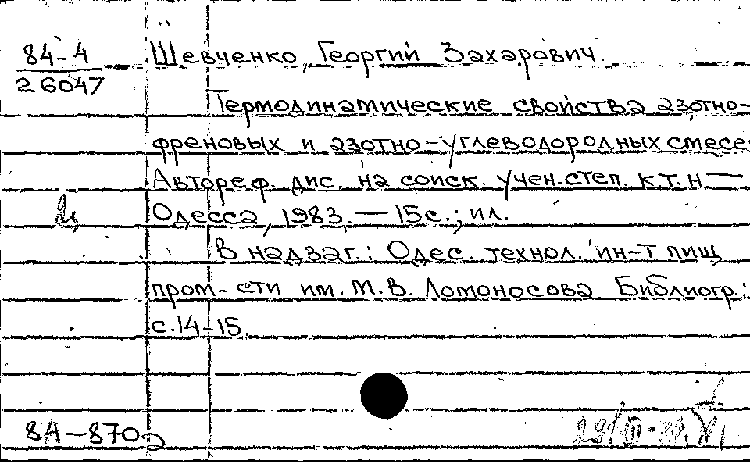 84-4
26047
Шевченко, Георгий Захарович.
Термодинамические свойства азотно-
френовых и азотно-углеводородных смесе
Автореф. дис. на соиск. учен. степ. к.т.н —
Одесса, 1983. — 15 с.; ил.
В надзаг.: Одес. технол. ин-т пищ
пром-сти им. М.В. Ломоносова Библиогр.:
с. 14-15.
8А-870